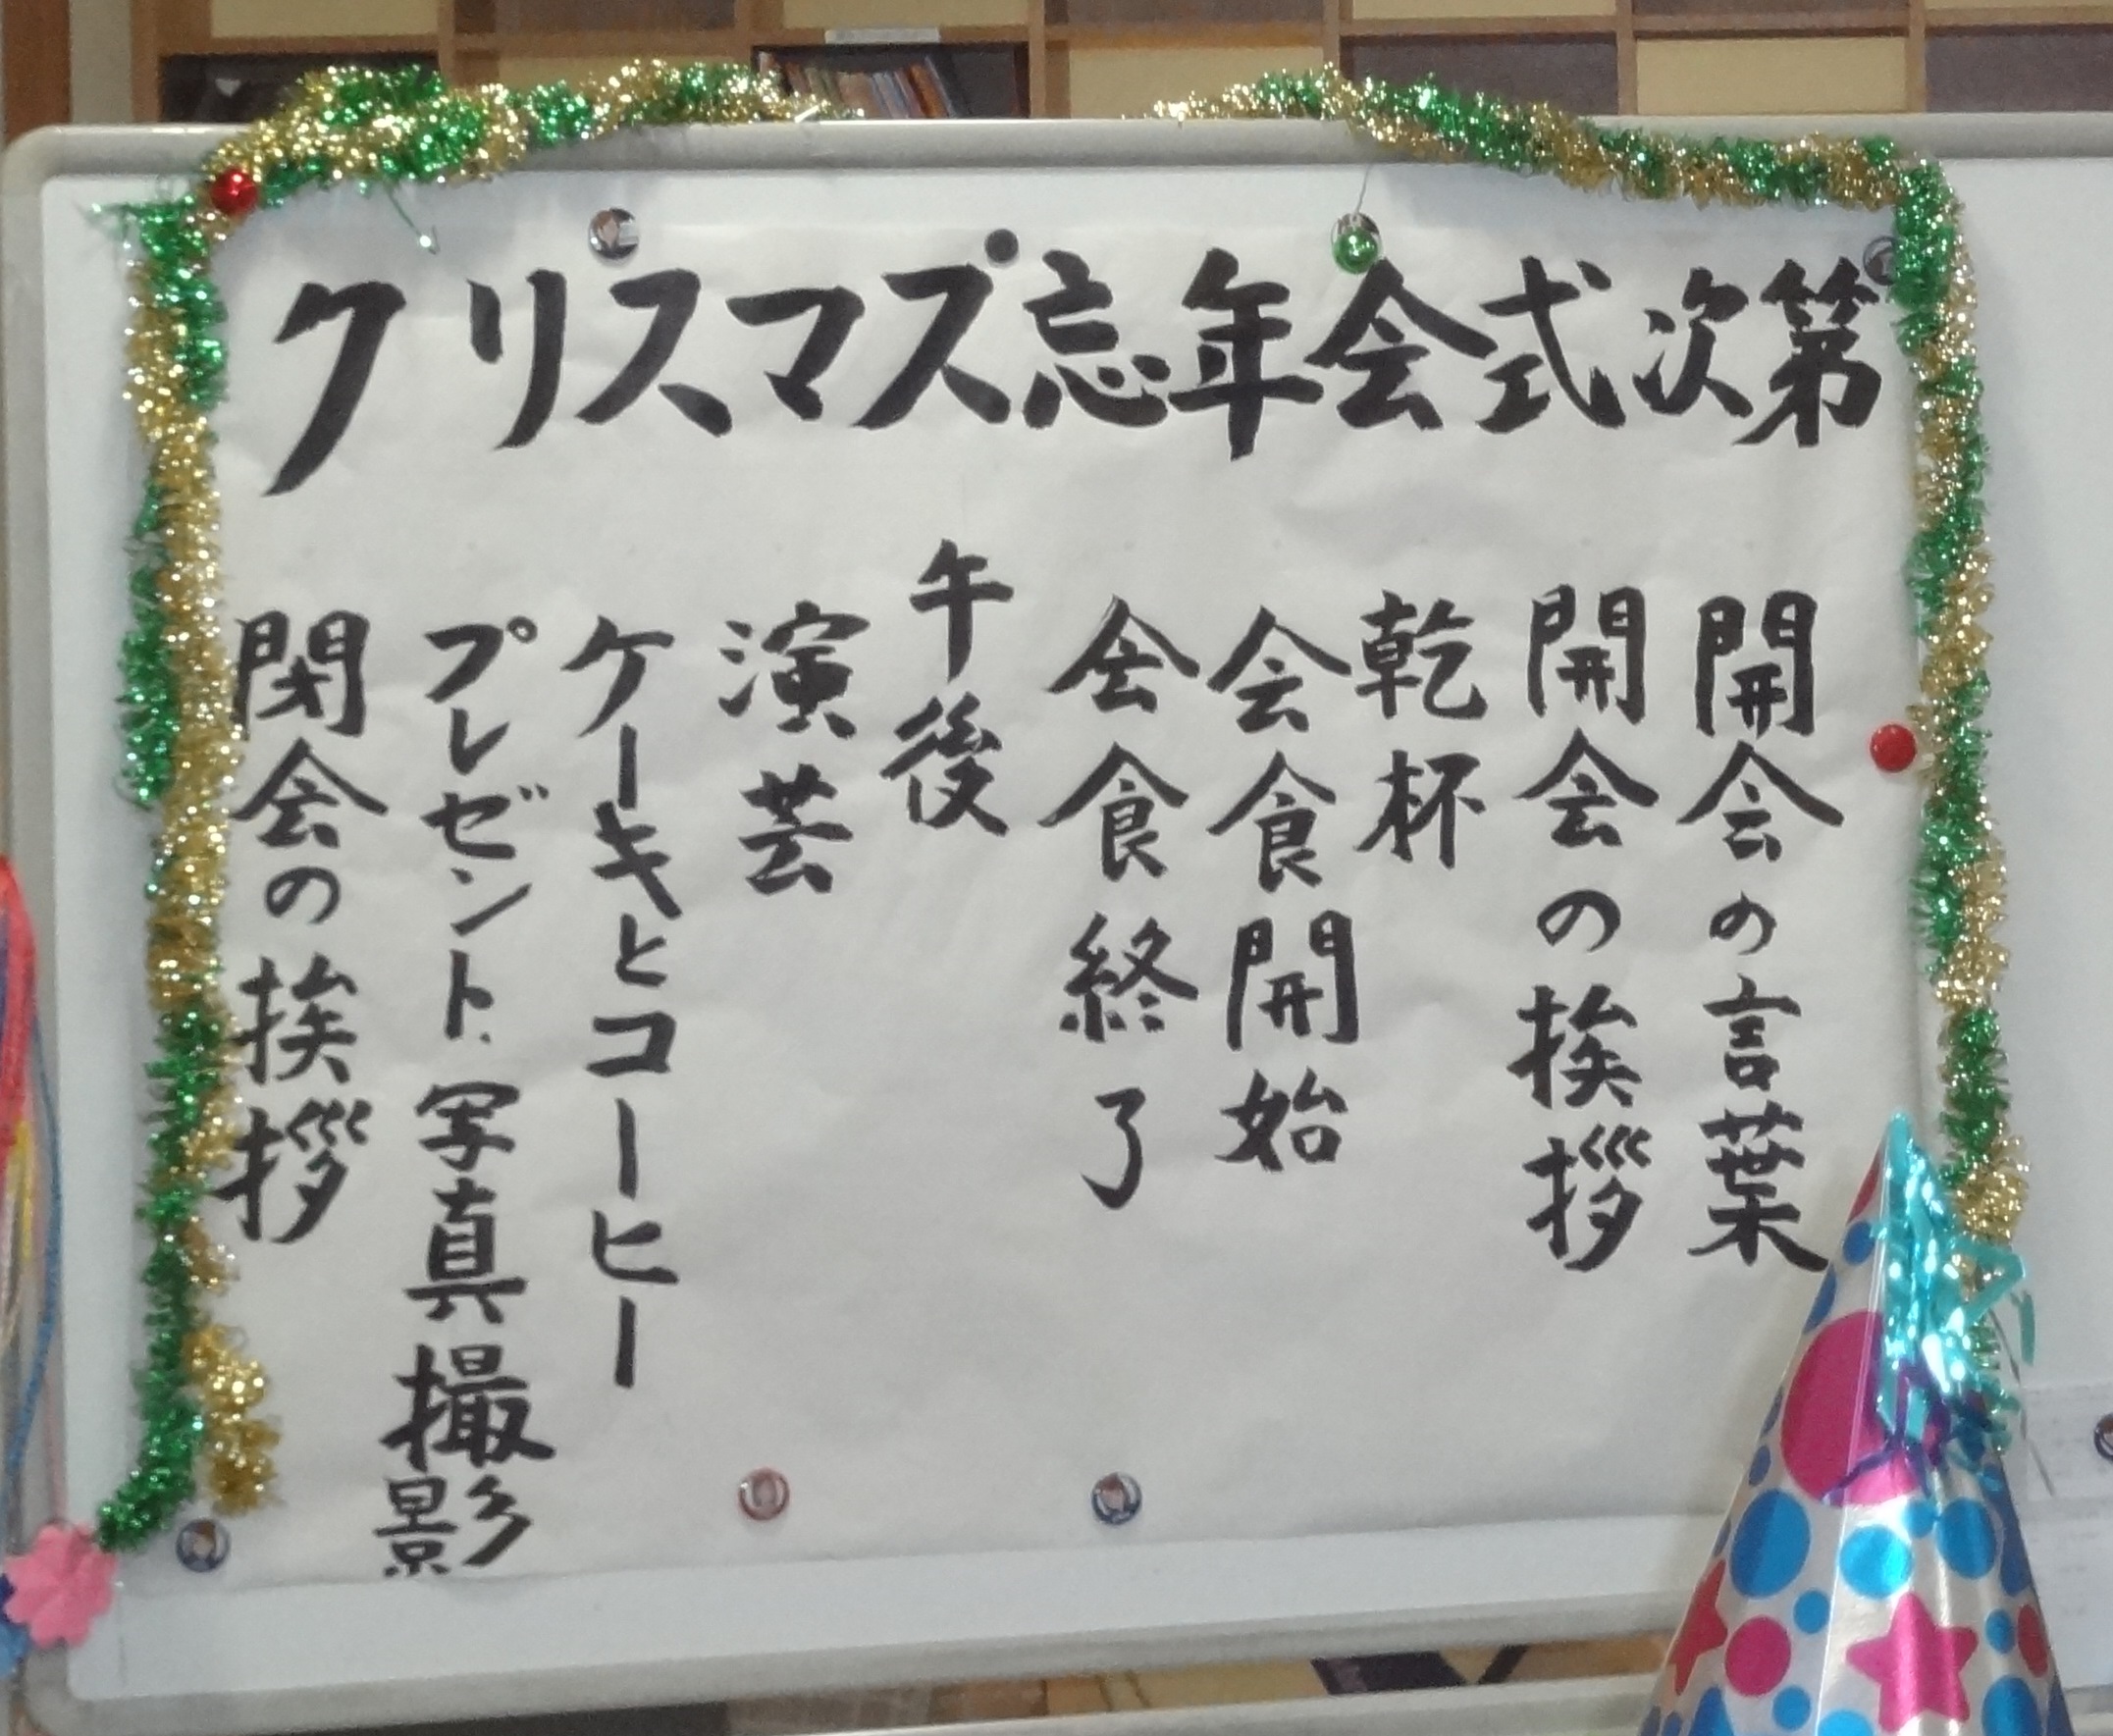 クリスマス忘年会式次第
開会の言葉
開会の挨拶
乾杯
会食開始
会食終了
午後
演芸
ケーキとコーヒー
プレゼント、写真撮影
閉会の挨拶